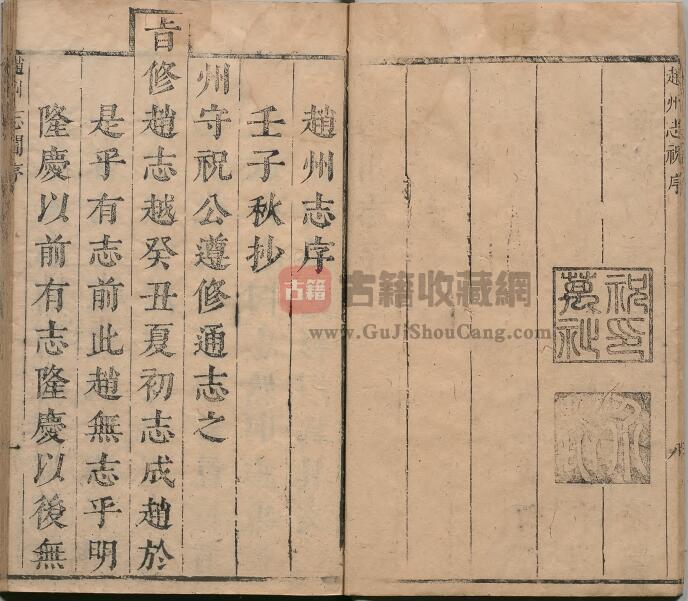 趙州志祝序
祝印
萬祉
趙州志序
壬子秋抄
州守祝公遵修通志之
旨修趙志越癸丑夏初志成趙於
是乎有志前此趙無志乎明
隆慶以前有志隆慶以後無
趙州志 序
一
古籍 古籍收藏網
www.GuJiShouCang.com